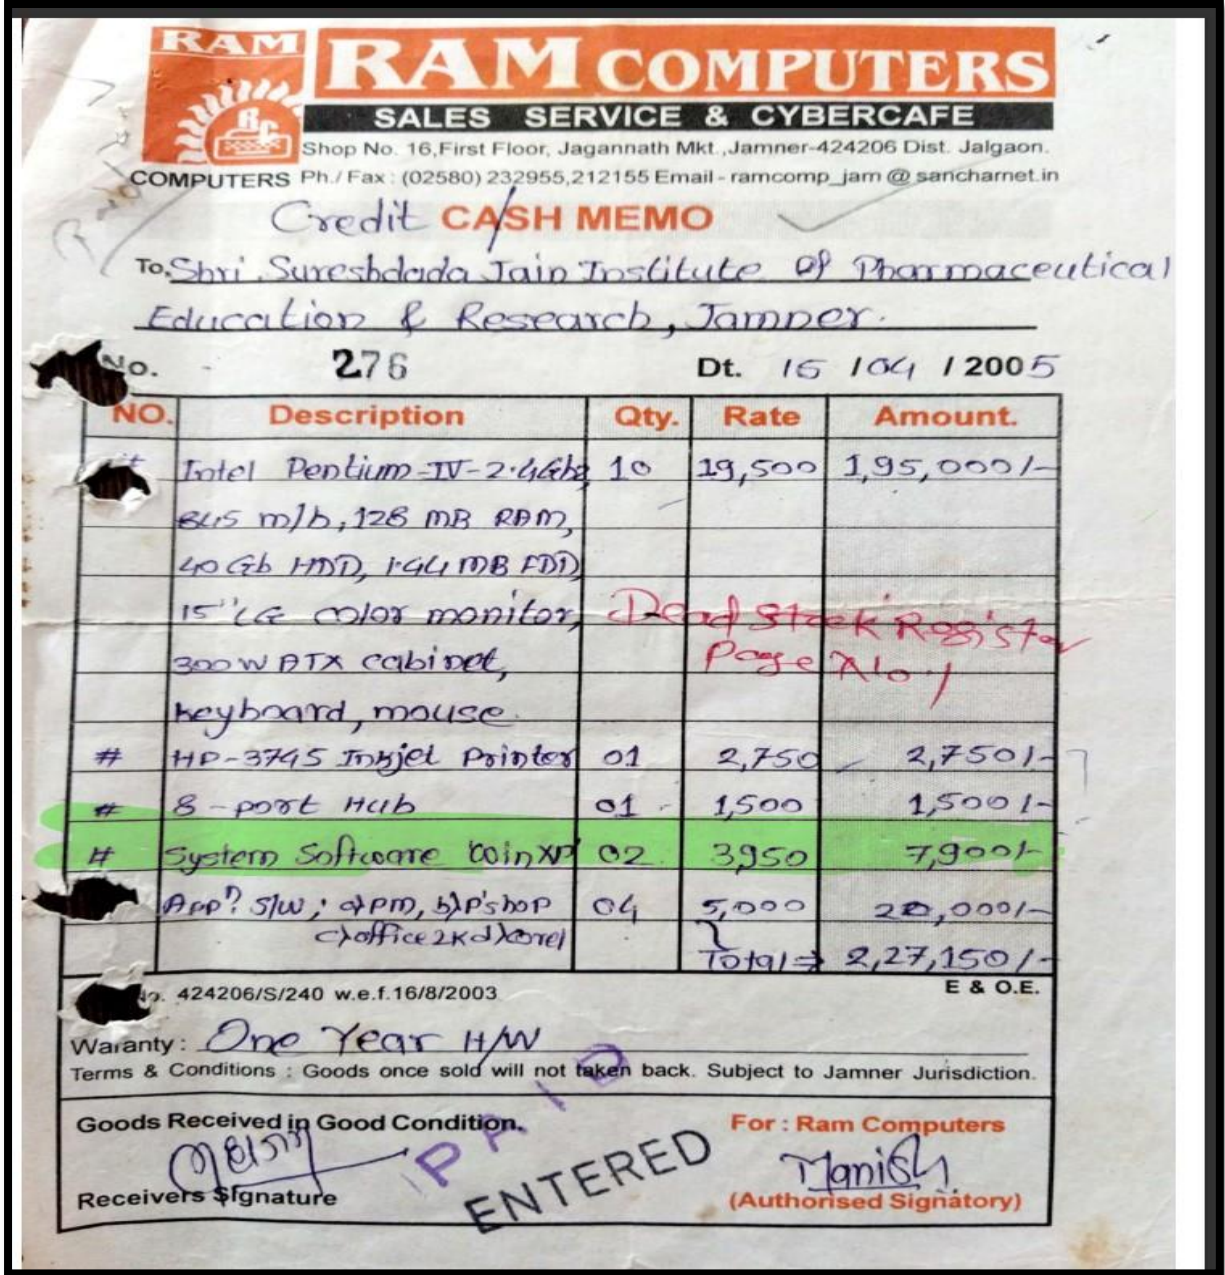 RAM
RAM COMPUTERS
SALES SERVICE & CYBERCAFE
Shop No. 16,First Floor, Jagannath Mkt.,Jamner-424206 Dist. Jalgaon.
COMPUTERS Ph./ Fax : (02580) 232955,212155 Email - ramcomp_jam @ sancharnet.in
Credit CASH MEMO
To, Shri. Sureshdada Jain Institute Of Pharmaceutical
Education & Research, Jamner.
No. 276 Dt. 15 / 04 / 2005
NO. Description Qty. Rate Amount.
Intel Pentium-IV-2.4Ghz 10 19,500 1,95,000/-
845 m/b, 128 MB RAM,
40 Gb HDD, 1.44 MB FDD
15" LG color monitor,
Dead Stock Register
300W ATX cabinet,
Page No. 1
keyboard, mouse.
# HP-3745 Inkjet Printer 01 2,750 2,750/-
# 8-port Hub 01 1,500 1,500/-
# System Software WinXP 02 3,950 7,900/-
App? S/W; a) PM, b) P'shop 04 5,000 20,000/-
c) office 2K d) Corel
Total ⇒ 2,27,150/-
No. 424206/S/240 w.e.f.16/8/2003 E & O.E.
Waranty : One Year H/W
Terms & Conditions : Goods once sold will not taken back. Subject to Jamner Jurisdiction.
PAID
Goods Received in Good Condition. For : Ram Computers
ENTERED
Manish
Receivers Signature (Authorised Signatory)